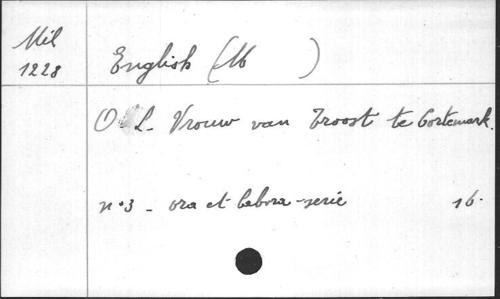 Mil
1228
English (M )
O L. Vrouw van Troost te Cortemark.
n°3 - ora et labora-serie 16.